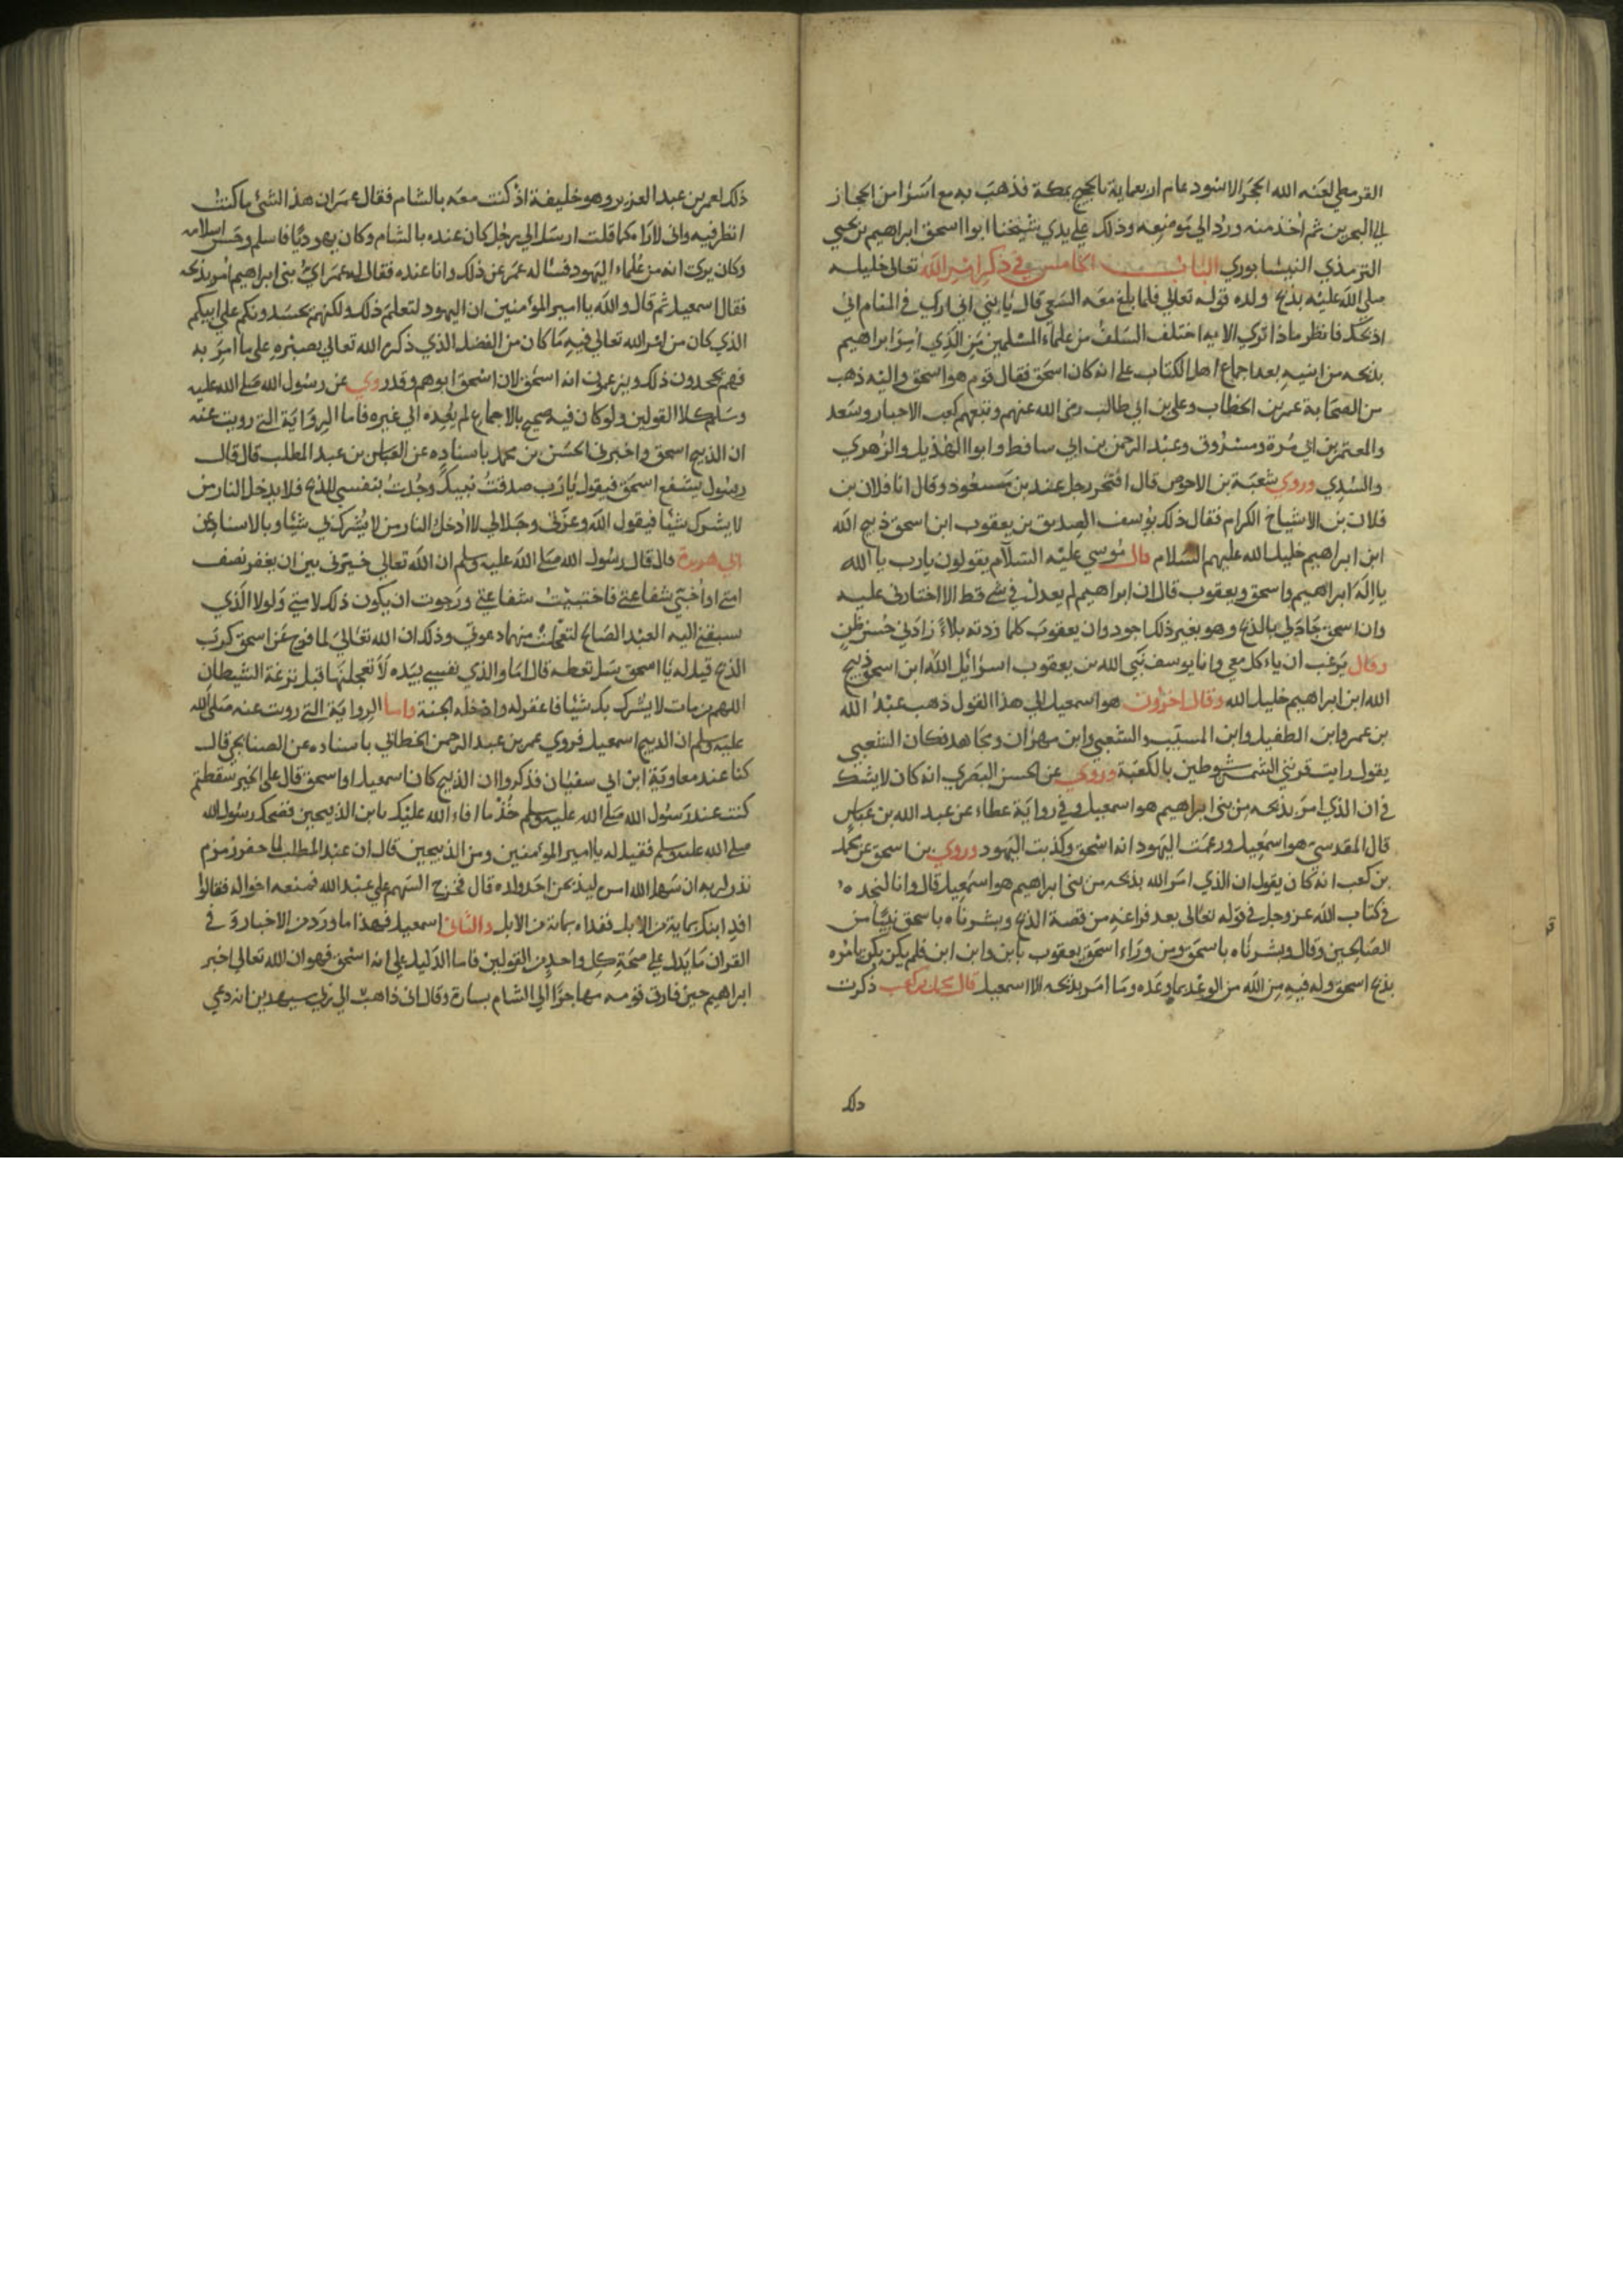 القرمطي لعنه الله الحجر الاسود عام اربعماية بالحجيج بمكة فذهب به مع اسرا من الحجاز
الي البحرين ثم اخذ منه ورد الي موضعه وذلك علي يدي شيخنا ابوا اسحق ابراهيم بن يحيي
الترمذي النيسابوري الباب الخامس في ذكر امر الله تعالى خليله
صلي الله عليه بذبح ولده قوله تعالي فلما بلغ معه السعي قال يا بني اني اري في المنام اني
اذبحك فانظر ماذا تري الايه اختلف السلف من علماء المسلمين من الذي امر ابراهيم
بذبحه من ابنيه بعد اجماع اهل الكتاب علي انه كان اسحق فقال قوم هو اسحق واليه ذهب
من الصحابة عمر بن الخطاب وعلي بن ابي طالب رضي الله عنهم وتبعهم كعب الاحبار وسعد
والمعتمر بن ابي مرة ومسروق وعبد الرحمن بن ابي سافط وابوا الهذيل والزهري
والسدي وروي شعبة بن الاحوص قال افتخر رجل عند بن مسعود وقال انا فلان بن
فلان بن الاشياخ الكرام فقال ذلك يوسف الصديق بن يعقوب ابن اسحق ذبيح الله
ابن ابراهيم خليل الله عليهم السلام قال موسي عليه السلام يقولون يا رب يا الله
يا اله ابراهيم واسحق ويعقوب قال ان ابراهيم لم يعدل بي شي قط الا اختارني عليه
وان اسحق جاد لي بالذبح وهو بغير ذلك اجود وان يعقوب كلما زدته بلاء زادني حسن ظن
وقال يرغب ان ياء كل معي وانا يوسف نبي الله بن يعقوب اسرائيل الله ابن اسحق ذبيح
الله ابن ابراهيم خليل الله وقال اخرون هو اسمعيل الي هذا القول ذهب عبد الله
بن عمر وابن الطفيل وابن المسيب والشعبي وابن مهران ومجاهد فكان الشعبي
يقول رايت قرني الشمس شوطين بالكعبة وروي عن الحسن البصري انه كان لا يشك
في ان الذي امر بذبحه من بني ابراهيم هو اسمعيل وفي رواية عطاء عن عبد الله بن عباس
قال المقدسي هو اسمعيل وزعمت اليهود انه اسحق وكذبت اليهود وروي بن اسحق عن محمد
بن كعب انه كان يقول ان الذي امر الله بذبحه من بني ابراهيم هو اسمعيل قال وانا لنجده
في كتاب الله عز وجل في قوله تعالي بعد فراغه من قصة الذبح وبشرناه باسحق نبيا من
الصالحين وقال وبشرناه باسحق ومن وراء اسحق يعقوب بابن وابن ابن فلم يكن يكن يامره
بذبح اسحق وله فيه من الله من الوعد بما وعده وما امر بذبحه الا اسمعيل قال محمد بن كعب ذكرت
ذلك
ذلك لعمر بن عبد العزيز وهو خليفة اذ كنت معه بالشام فقال عمر ان هذا الشئ ما كنت
انظر فيه واني لاراه كما قلت ارسل الي رجل كان عنده بالشام وكان يهوديا فاسلم وحسن اسلامه
وكان يري انه من علماء اليهود فساله عمر عن ذلك وانا عنده فقال له عمر اي بني ابراهيم امر بذبحه
فقال اسمعيل ثم قال والله يا امير المؤمنين ان اليهود لتعلم ذلك ولكنهم يحسدونكم علي ابيكم
الذي كان من امر الله تعالي فيه ما كان من الفضل الذي ذكره الله تعالي بصبره علي ما امر به
فهم يجحدون ذلك ويزعمون انه اسحق لان اسحق ابوهم وقد روي عن رسول الله صلي الله عليه
وسلم كلا القولين ولو كان فيه صحيح بالاجماع لم يعده الي غيره فاما الرواية التي رويت عنه
ان الذبيح اسحق واخبرني الحسن بن محمد باسناده عن العباس بن عبد المطلب قال قال
رسول يشفع اسحق فيقول يا رب صدقت نبيك وجدت بنفسي للذبح فلا يدخل النار من
لا يشرك شيئا فيقول الله وعزتي وجلالي لا ادخل النار من لا يشرك بي شيئا وبالاسناد عن
ابي هريرة قال قال رسول الله صلي الله عليه وسلم ان الله تعالي خيرني بين ان يغفر نصف
امتي او اختبي شفاعتي فاختبيت شفاعتي ورجوت ان يكون ذلك لامتي ولولا الذي
سبقني اليه العبد الصالح لتعجلت منها دعوتي وذلك ان الله تعالي لما فرج عن اسحق كرب
الذبح قيل له يا اسحق سل تعطه قال اما والذي نفسي بيده لا تعجلنها قبل نزغة الشيطان
اللهم من مات لا يشرك بك شيئا فاغفر له وادخله الجنة واما الرواية التي رويت عنه صلي الله
عليه وسلم ان الذبيح اسمعيل فروي عمر بن عبد الرحمن الخطابي باسناده عن الصنابحي قال
كنا عند معاوية ابن ابي سفيان فذكروا ان الذبيح كان اسمعيل او اسحق قال علي الخبير سقطتم
كنت عند رسول الله صلي الله عليه وسلم خذ ما افاء الله عليك يا بن الذبيحين فضحك رسول الله
صلي الله عليه وسلم فقيل له يا امير المؤمنين ومن الذبيحين قال ان عبد المطلب لما حفر زمزم
نذر لربه ان سهل الله امره ليذبحن احد ولده قال فخرج السهم علي عبد الله فمنعه اخواله فقالوا
افد ابنك بماية من الابل ففداه بماية من الابل والثاني اسمعيل فهذا ما ورد من الاخبار و في
القران ما يدل علي صحة كل واحد من القولين فاما الدليل علي انه اسحق فهو ان الله تعالي اخبر
ابراهيم حين فارق قومه مهاجرا الي الشام بسارة وقال اني ذاهب الي ربي سيهدين انه دعي